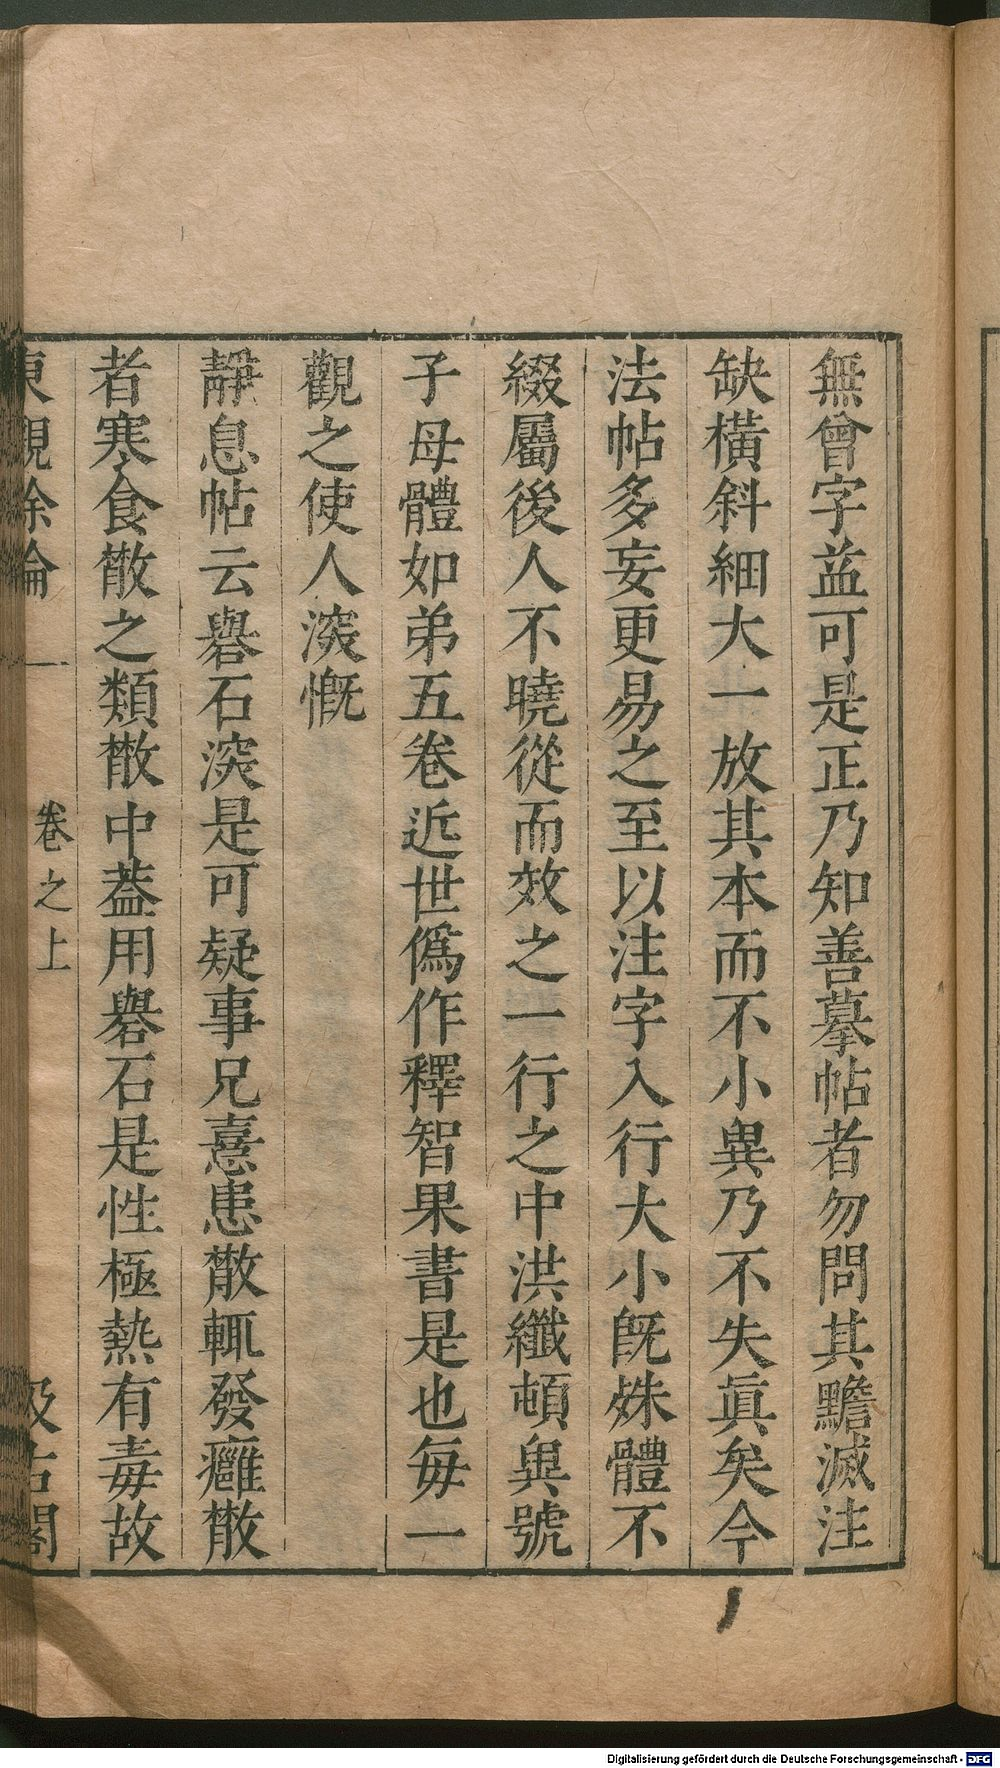 無曾字葢可是正乃知善摹帖者勿問其黵滅注
缺橫斜細大一放其本而不小異乃不失眞矣今
法帖多妄更易之至以注字入行大小旣殊體不
綴屬後人不曉從而效之一行之中洪纖頓異號
子母體如弟五卷近世僞作釋智果書是也每一
觀之使人深慨
靜息帖云礜石深是可疑事兄憙患散輒發癰散
者寒食散之類散中葢用礜石是性極熱有毒故
東觀餘論 卷之上 汲古閣
Digitalisierung gefördert durch die Deutsche Forschungsgemeinschaft - DFG